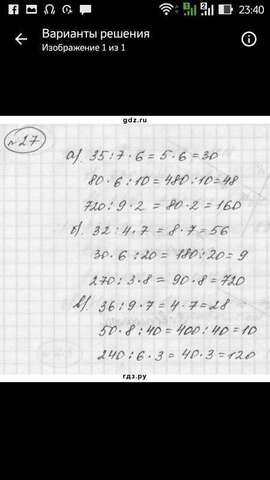 23:40
Варианты решения
Изображение 1 из 1
gdz.ru
№27
а) 35:7·6=5·6=30
80·6:10=480:10=48
720:9·2=80·2=160
б) 32:4·7=8·7=56
30·6:20=180:20=9
270:3·8=90·8=720
в) 36:9·7=4·7=28
50·8:40=400:40=10
240:6·3=40·3=120
гдз.ру